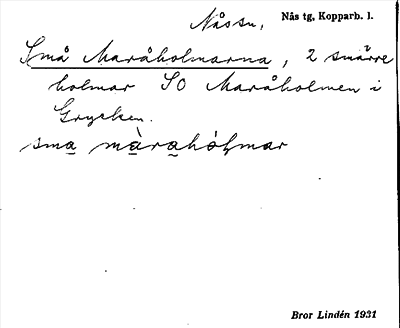 Nåssn,
Nås tg, Kopparb. l.
Små Maråholmarna, 2 smärre
holmar SO Maråholmen i
Grycken.
Bror Lindén 1931